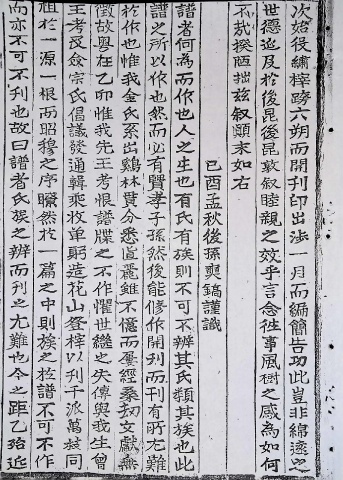 次始役繡梓跨六朔而開刊印出涉一月而編簡告功此豈非綿遠之
世德迄及於後昆後昆敦叙睦親之效乎言念往事風樹之感為如何
不敢揆陋拙玆叙顚末如右
己酉孟秋後孫奭鎬謹識
譜者何為而作也人之生也有氏有族則不可不辨其氏類其族也此
譜之所以作也然而必有賢孝子孫然後能修作開刊而刊有所尤難
於作也惟我金氏系出鷄林貫分悉直麗雖不億而屢經刼文獻無
徵故粤在乙卯惟我先王考恨譜牒之不作懼世継之失傳與我生曾
王考及僉宗氏倡議發通輯乘收单躬造花山登梓以刊千派萬枝同
祖於一源一根而昭穆之序瞭然於一篇之中則族之於譜不可不作
而亦不可不刊也故曰譜者氏族之辨而刊之尤難也今之距乙殆近